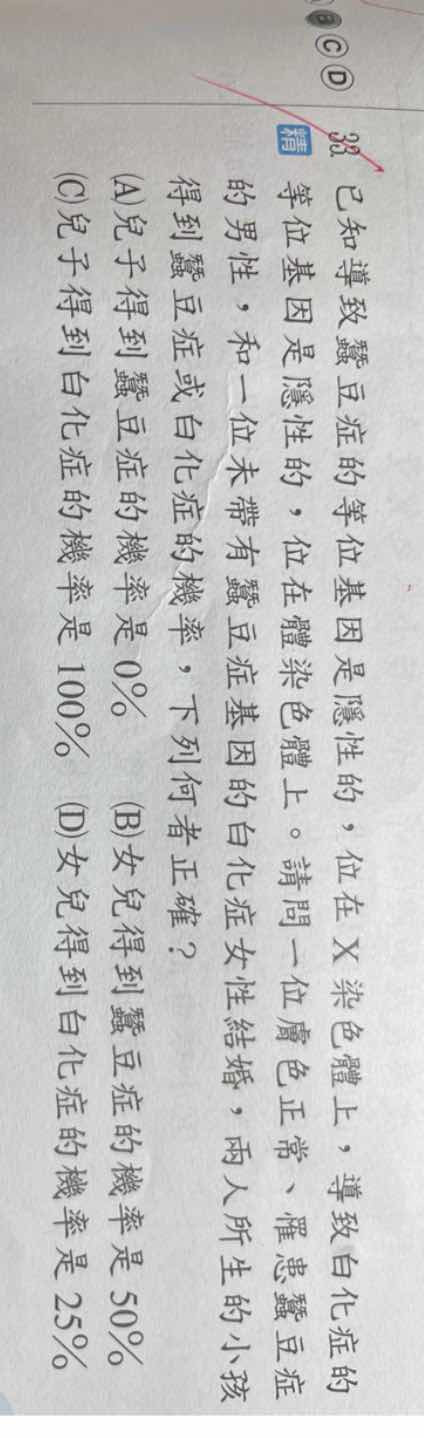 B C D
33. 已知導致蠶豆症的等位基因是隱性的，位在 X 染色體上，導致白化症的
精 等位基因是隱性的，位在體染色體上。請問一位膚色正常、罹患蠶豆症
的男性，和一位未帶有蠶豆症基因的白化症女性結婚，兩人所生的小孩
得到蠶豆症或白化症的機率，下列何者正確？
(A)兒子得到蠶豆症的機率是 0% (B)女兒得到蠶豆症的機率是 50%
(C)兒子得到白化症的機率是 100% (D)女兒得到白化症的機率是 25%